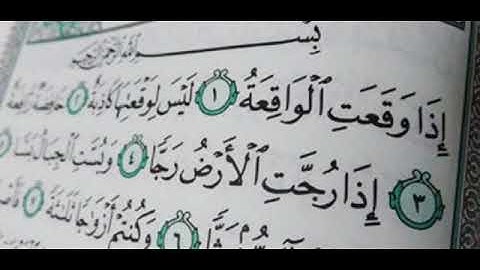 بِسْمِ ٱللَّهِ ٱلرَّحْمَٰنِ ٱلرَّحِيمِ
إِذَا وَقَعَتِ ٱلْوَاقِعَةُ ١ لَيْسَ لِوَقْعَتِهَا كَاذِبَةٌ ٢ خَافِضَةٌ رَّافِعَةٌ
٣ إِذَا رُجَّتِ ٱلْأَرْضُ رَجًّا ٤ وَبُسَّتِ ٱلْجِبَالُ بَسًّا
٦ وَكُنتُمْ أَزْوَٰجًا ثَلَٰثَةً ٧